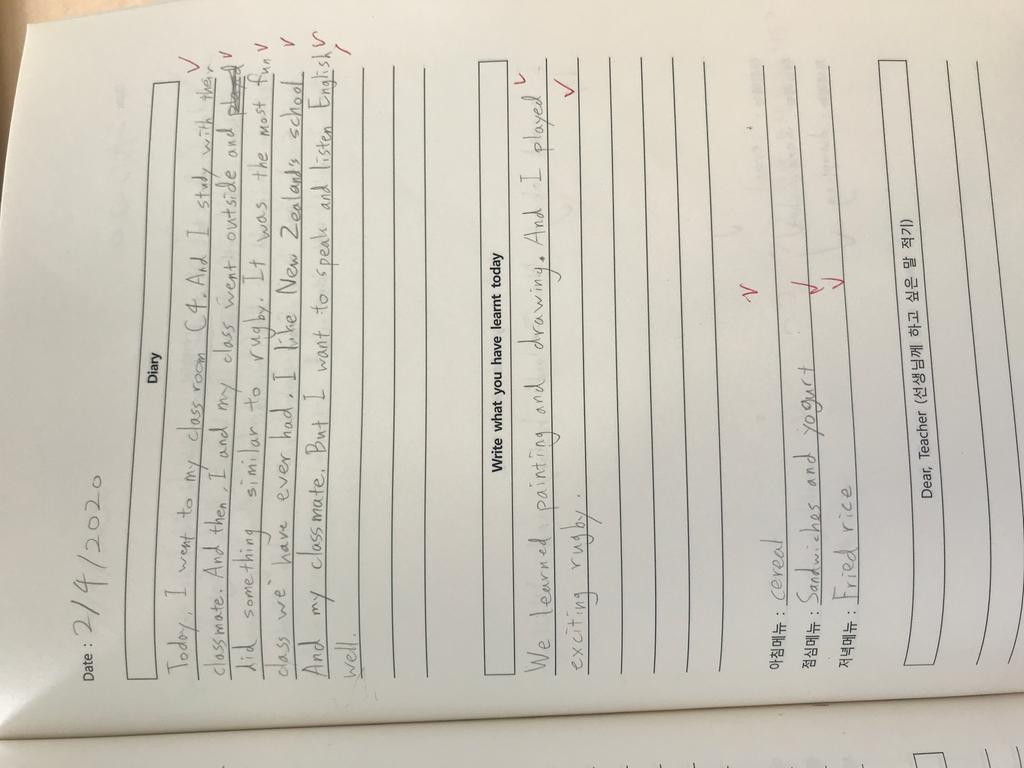 Date : 2/4/2020
Diary
Today, I went to my class room C4. And I study with their
classmate. And then, I and my class went outside and played
did something similar to rugby. It was the most fun
class we have ever had. I like New Zealand's school
And my classmate. But I want to speak and listen English
well.
Write what you have learnt today
We learned painting and drawing. And I played
exciting rugby.
아침메뉴 : cereal
점심메뉴 : Sandwiches and yogurt
저녁메뉴 : Fried rice
Dear, Teacher (선생님께 하고 싶은 말 적기)